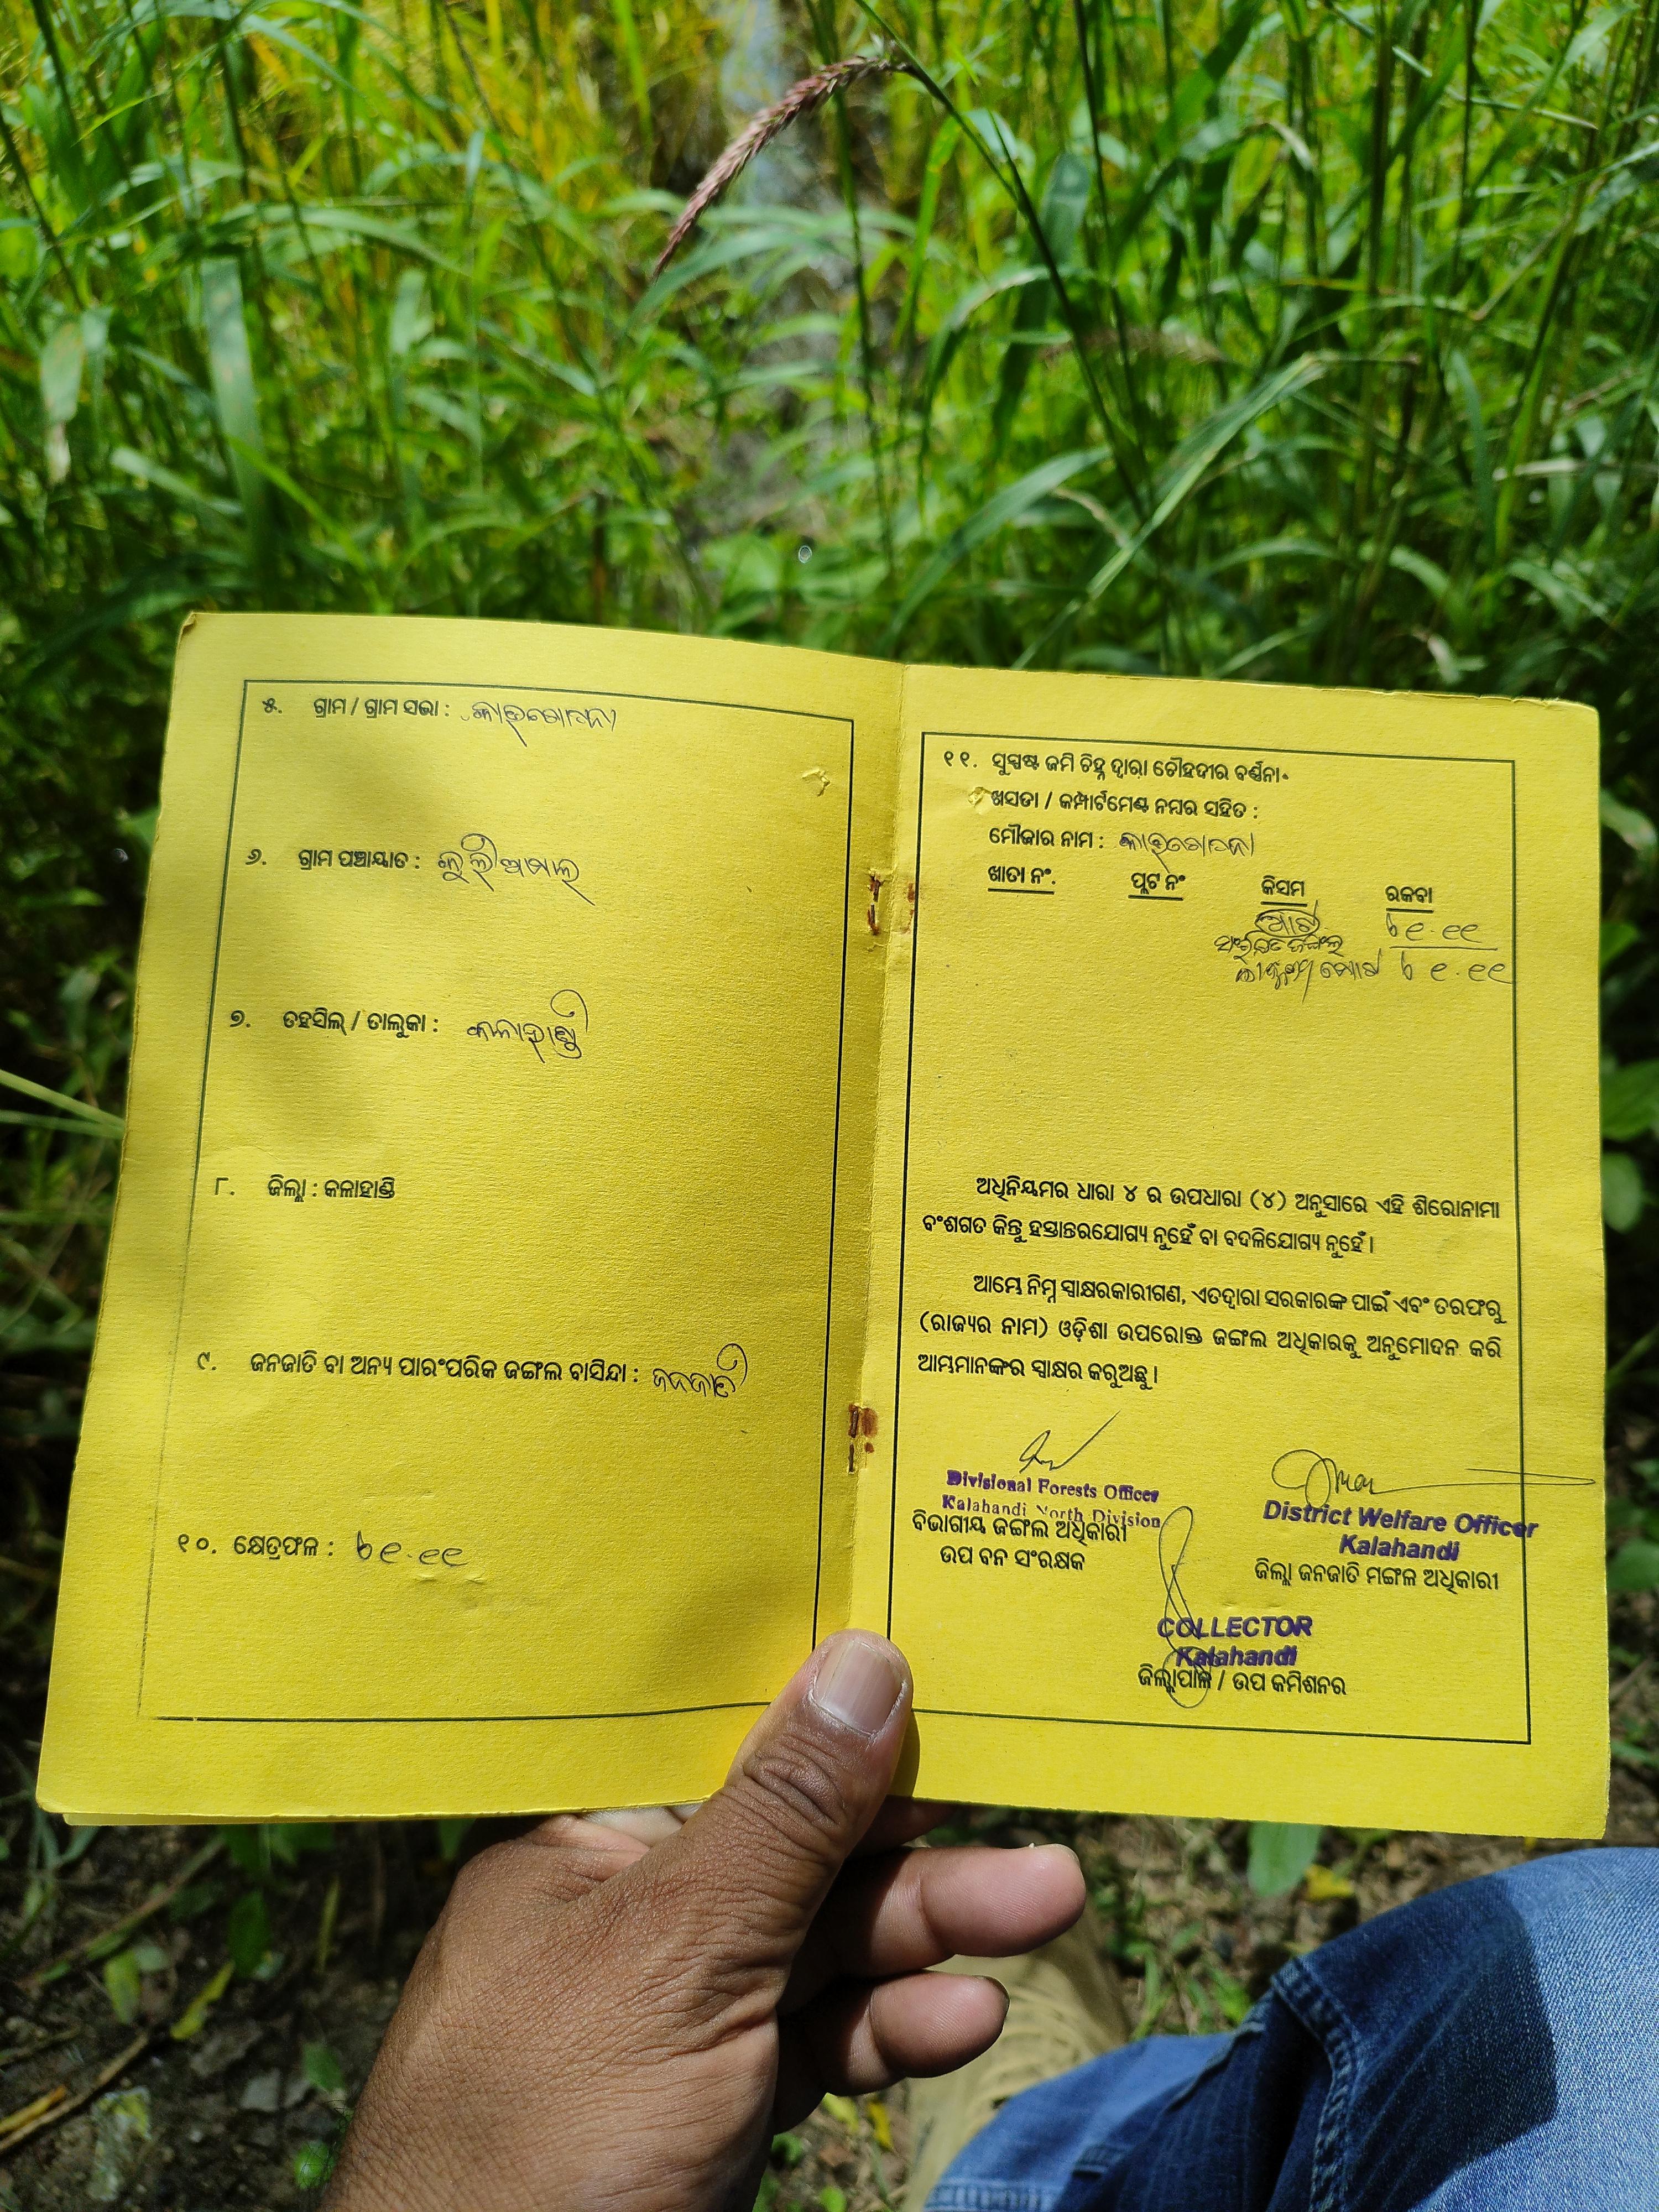 ୫. ଗ୍ରାମ / ଗ୍ରାମ ସଭା :
୬. ଗ୍ରାମ ପଞ୍ଚାୟାତ :
୭. ତହସିଲ୍ / ତାଲୁକା : କଳାହାଣ୍ଡି
୮. ଜିଲ୍ଲା : କଳାହାଣ୍ଡି
୯. ଜନଜାତି ବା ଅନ୍ୟ ପାରଂପରିକ ଜଙ୍ଗଲ ବାସିନ୍ଦା : ଜନଜାତି
୧୦. କ୍ଷେତ୍ରଫଳ :
୧୧. ସୁସ୍ପଷ୍ଟ ଜମି ଚିହ୍ନ ଦ୍ୱାରା ଚୌହଦୀର ବର୍ଣ୍ଣନା
ଖସଡା / କମ୍ପାର୍ଟମେଣ୍ଟ ନମ୍ବର ସହିତ :
ମୌଜାର ନାମ :
ଖାତା ନଂ. ପ୍ଲଟ ନଂ କିସମ ରକବା
ଅଧିନିୟମର ଧାରା ୪ ର ଉପଧାରା (୪) ଅନୁସାରେ ଏହି ଶିରୋନାମା
ବଂଶଗତ କିନ୍ତୁ ହସ୍ତାନ୍ତରଯୋଗ୍ୟ ନୁହେଁ ବା ବଦଳିଯୋଗ୍ୟ ନୁହେଁ ।
ଆମ୍ଭେ ନିମ୍ନ ସ୍ୱାକ୍ଷରକାରୀଗଣ, ଏତଦ୍ୱାରା ସରକାରଙ୍କ ପାଇଁ ଏବଂ ତରଫରୁ
(ରାଜ୍ୟର ନାମ) ଓଡ଼ିଶା ଉପରୋକ୍ତ ଜଙ୍ଗଲ ଅଧିକାରକୁ ଅନୁମୋଦନ କରି
ଆମ୍ଭମାନଙ୍କର ସ୍ୱାକ୍ଷର କରୁଅଛୁ ।
Divisional Forests Officer
Kalahandi North Division
ବିଭାଗୀୟ ଜଙ୍ଗଲ ଅଧିକାରୀ
ଉପ ବନ ସଂରକ୍ଷକ
District Welfare Officer
Kalahandi
ଜିଲ୍ଲା ଜନଜାତି ମଙ୍ଗଳ ଅଧିକାରୀ
COLLECTOR
Kalahandi
ଜିଲ୍ଲାପାଳ / ଉପ କମିଶନର